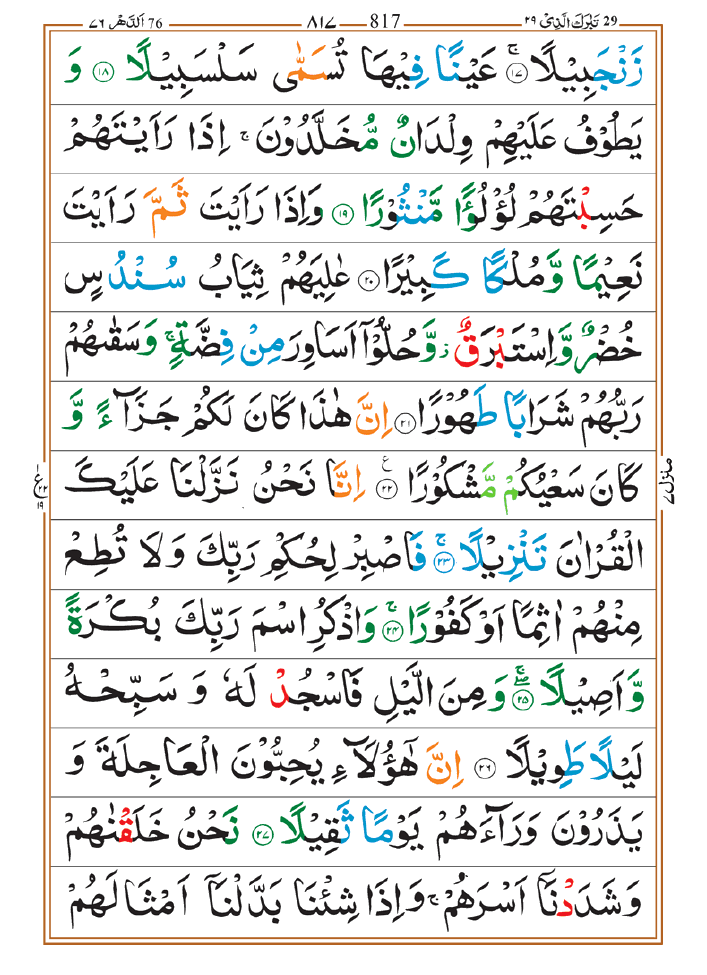 29 تَبٰرَكَ الَّذِىْ ٢٩ — 817 — ٨١٧ — 76 اَلدَّهْر ٧٦
زَنْجَبِيْلًا ۚ ١٧ عَيْنًا فِيْهَا تُسَمّٰى سَلْسَبِيْلًا ١٨ وَ
يَطُوْفُ عَلَيْهِمْ وِلْدَانٌ مُّخَلَّدُوْنَ ۚ اِذَا رَاَيْتَهُمْ
حَسِبْتَهُمْ لُؤْلُؤًا مَّنْثُوْرًا ١٩ وَاِذَا رَاَيْتَ ثَمَّ رَاَيْتَ
نَعِيْمًا وَّمُلْكًا كَبِيْرًا ٢٠ عٰلِيَهُمْ ثِيَابُ سُنْدُسٍ
خُضْرٌ وَّاِسْتَبْرَقٌ ز وَّحُلُّوْۤا اَسَاوِرَ مِنْ فِضَّةٍ ۚ وَسَقٰىهُمْ
رَبُّهُمْ شَرَابًا طَهُوْرًا ٢١ اِنَّ هٰذَا كَانَ لَكُمْ جَزَآءً وَّ
كَانَ سَعْيُكُمْ مَّشْكُوْرًا ٢٢ ع اِنَّا نَحْنُ نَزَّلْنَا عَلَيْكَ
الْقُرْاٰنَ تَنْزِيْلًا ۚ ٢٣ فَاصْبِرْ لِحُكْمِ رَبِّكَ وَلَا تُطِعْ
مِنْهُمْ اٰثِمًا اَوْ كَفُوْرًا ۚ ٢٤ وَاذْكُرِ اسْمَ رَبِّكَ بُكْرَةً
وَّاَصِيْلًا ۖۚ ٢٥ وَمِنَ الَّيْلِ فَاسْجُدْ لَهٗ وَ سَبِّحْهُ
لَيْلًا طَوِيْلًا ٢٦ اِنَّ هٰٓؤُلَآءِ يُحِبُّوْنَ الْعَاجِلَةَ وَ
يَذَرُوْنَ وَرَآءَهُمْ يَوْمًا ثَقِيْلًا ٢٧ نَحْنُ خَلَقْنٰهُمْ
وَشَدَدْنَاۤ اَسْرَهُمْ ۚ وَاِذَا شِئْنَا بَدَّلْنَاۤ اَمْثَالَهُمْ
منزل ٧
ع
٢٢
١٩